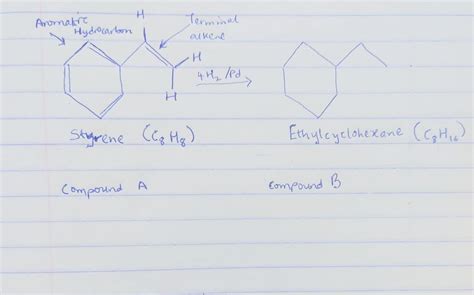 Aromatic Hydrocarbon
Terminal alkene
H
H
H
4H₂/Pd
Styrene (C₈H₈)
Ethylcyclohexane (C₈H₁₆)
Compound A
Compound B